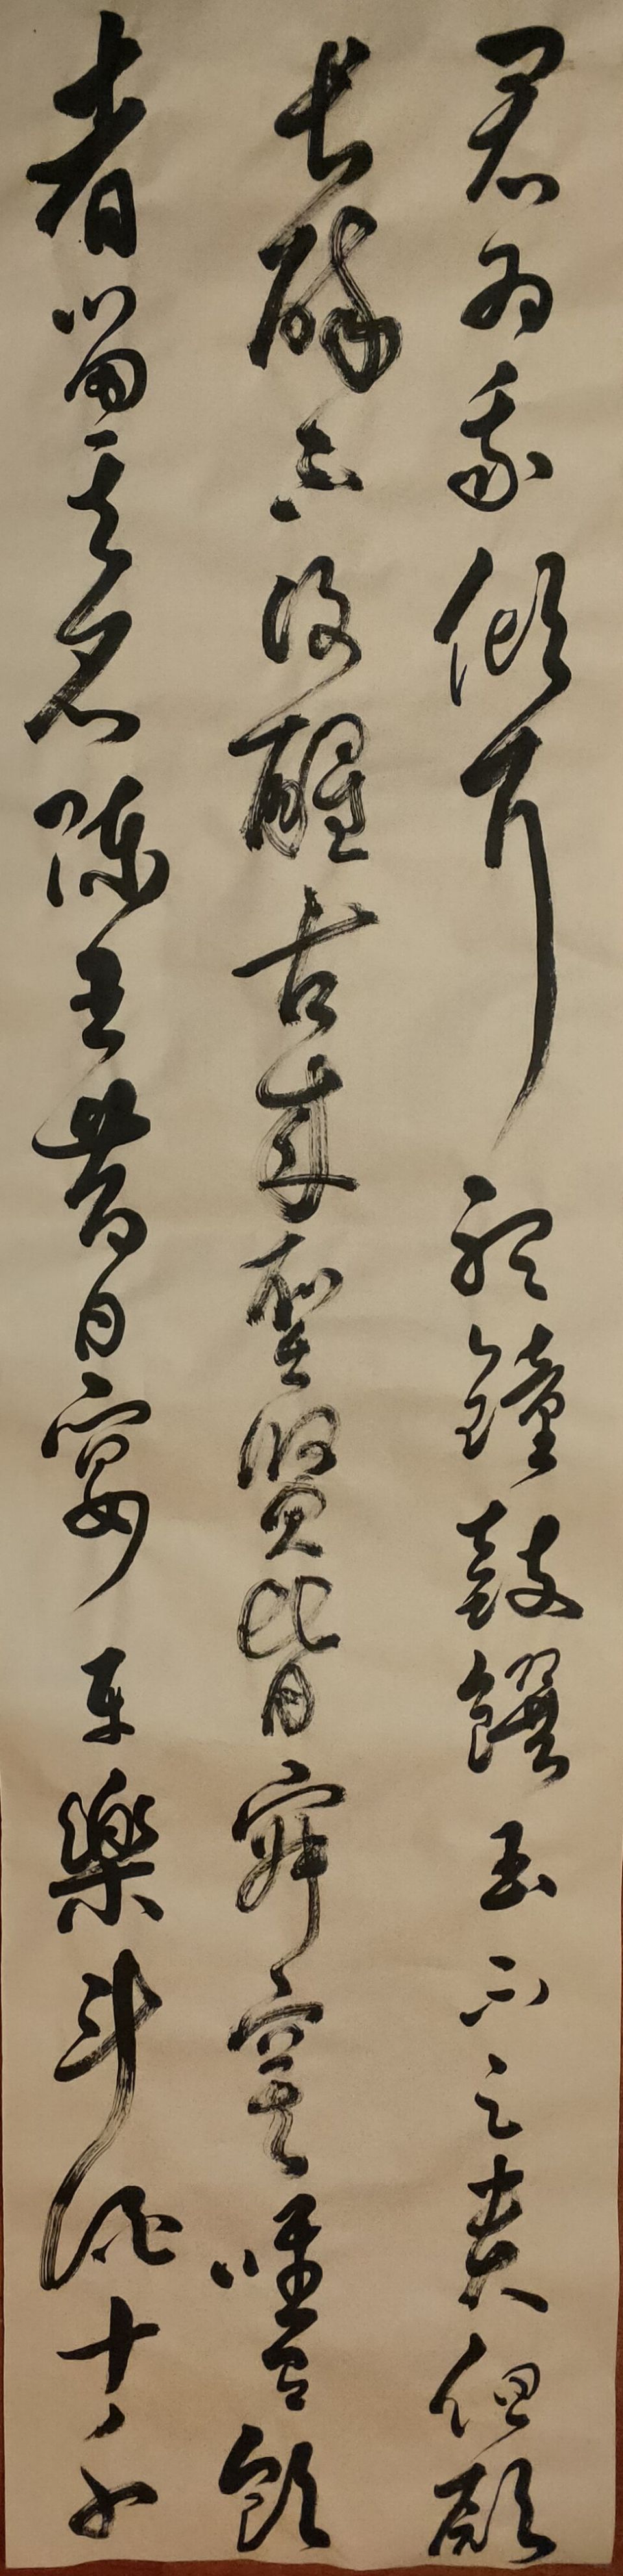 君為我傾耳聽鐘鼓饌玉不足貴但願
長醉不復醒古來聖賢皆寂寞唯有飲
者留其名陳王昔日宴平樂斗酒十千